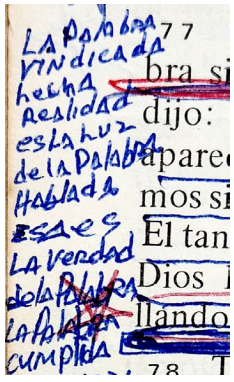 LA PALABRA
VINDICADA
hecha
Realidad
es LA LUZ
de la PALABRA
HABLADA
ESA es
LA VERDAD
de la PALABRA
LA PALABRA
CUMPLIDA
77
bra si
dijo:
apare
mos si
El tan
Dios
llando
78